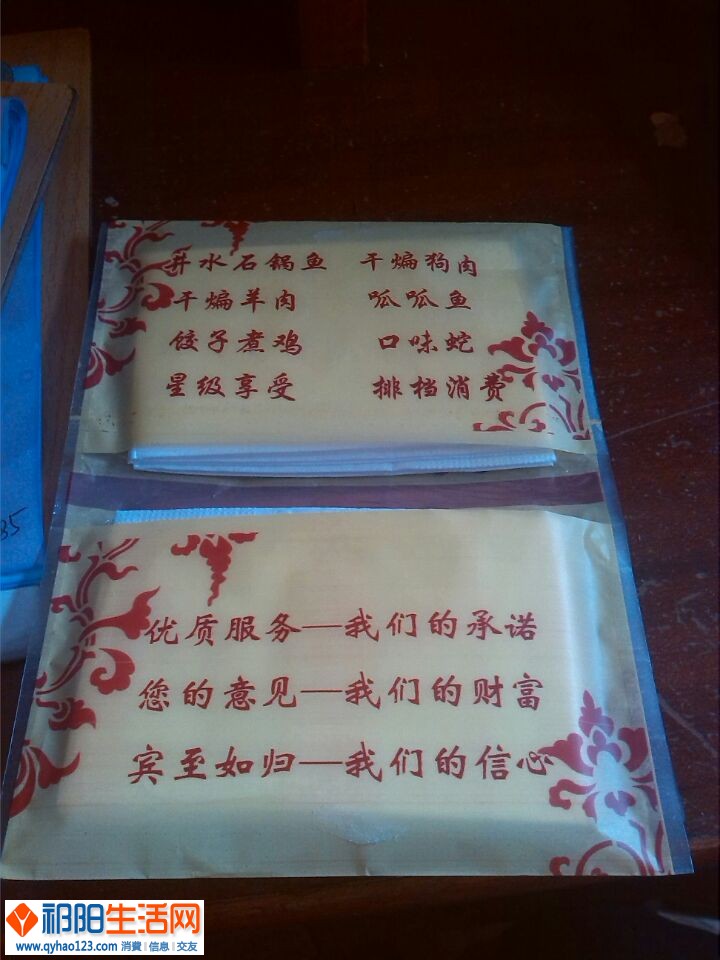 井水石锅鱼 干煸狗肉
干煸羊肉 呱呱鱼
饺子煮鸡 口味蛇
星级享受 排档消费
优质服务—我们的承诺
您的意见—我们的财富
宾至如归—我们的信心
祁阳生活网
www.qyhao123.com 消費|信息|交友